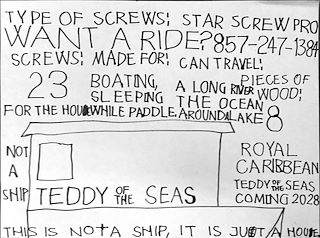 TYPE OF SCREWS! STAR SCREW PRO
WANT A RIDE? 857-247-1384
SCREWS! MADE FOR! CAN TRAVEL!
23 BOATING, A LONG RIVER PIECES OF WOOD!
SLEEPING THE OCEAN
FOR THE HOUR WHILE PADDLE. AROUND A LAKE 8
NOT A SHIP
ROYAL CARIBBEAN
TEDDY OF THE SEAS
TEDDY OF THE SEAS
COMING 2028
THIS IS NOT A SHIP, IT IS JUST A HOUSE.